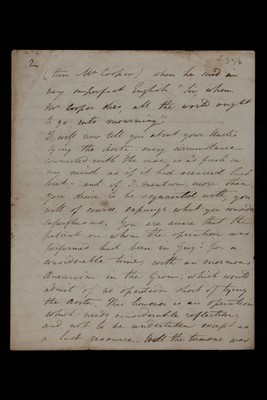 2
(then Mr Cooper) when he said in
very imperfect English "Sir when
Mr Cooper dies, all the world ought
to go into mourning".
I will now tell you about your Uncles
tying the Aorta every circumstance
connected with the case is as fresh in
my mind as if it had occurred last
week: and if I mention more than
you desire to be acquainted with, you
will of course expunge what you consider
superfluous. You are aware that the
patient on whom the operation was
performed had been in Guy's for a
considerable time, with an enormous
Aneurism in the Groin, which would
admit of no operation short of tying
the Aorta. This however is an operation
which needs considerable reflection,
and not to be undertaken except as
a last resource. Well the tumour was